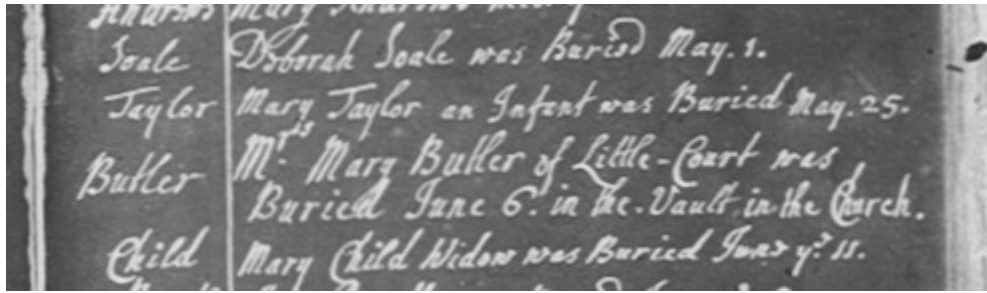 Andrews Mary Andrews
Soale Deborah Soale was Buried May. 1.
Taylor Mary Taylor an Infant was Buried May. 25.
Butler Mrs. Mary Butler of Little-Court was
Buried June 6. in the Vault in the Church.
Child Mary Child Widow was Buried June ye 11.